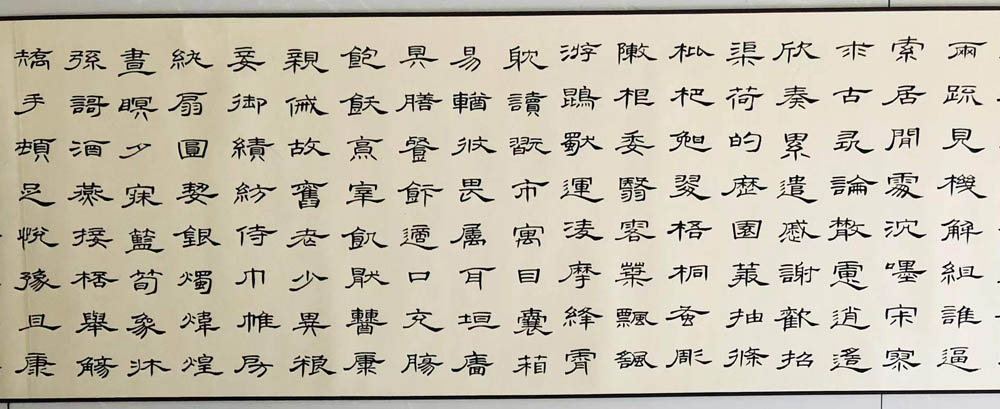 兩疏見機解組誰逼
索居閒處沉嚜寂寥
求古尋論散慮逍遙
欣奏累遣慼謝歡招
渠荷的歷園莽抽條
枇杷晚翠梧桐蚤彫
陳根委翳落葉飄颻
游鵾獨運凌摩絳霄
耽讀翫市寓目囊箱
易輶攸畏屬耳垣牆
具膳飡飯適口充腸
飽飫烹宰飢厭糟糠
親戚故舊老少異糧
妾御績紡侍巾帷房
紈扇圓絜銀燭煒煌
晝瞑夕寐籃筍象牀
弦歌酒燕接桮舉觴
矯手頓足悅豫且康